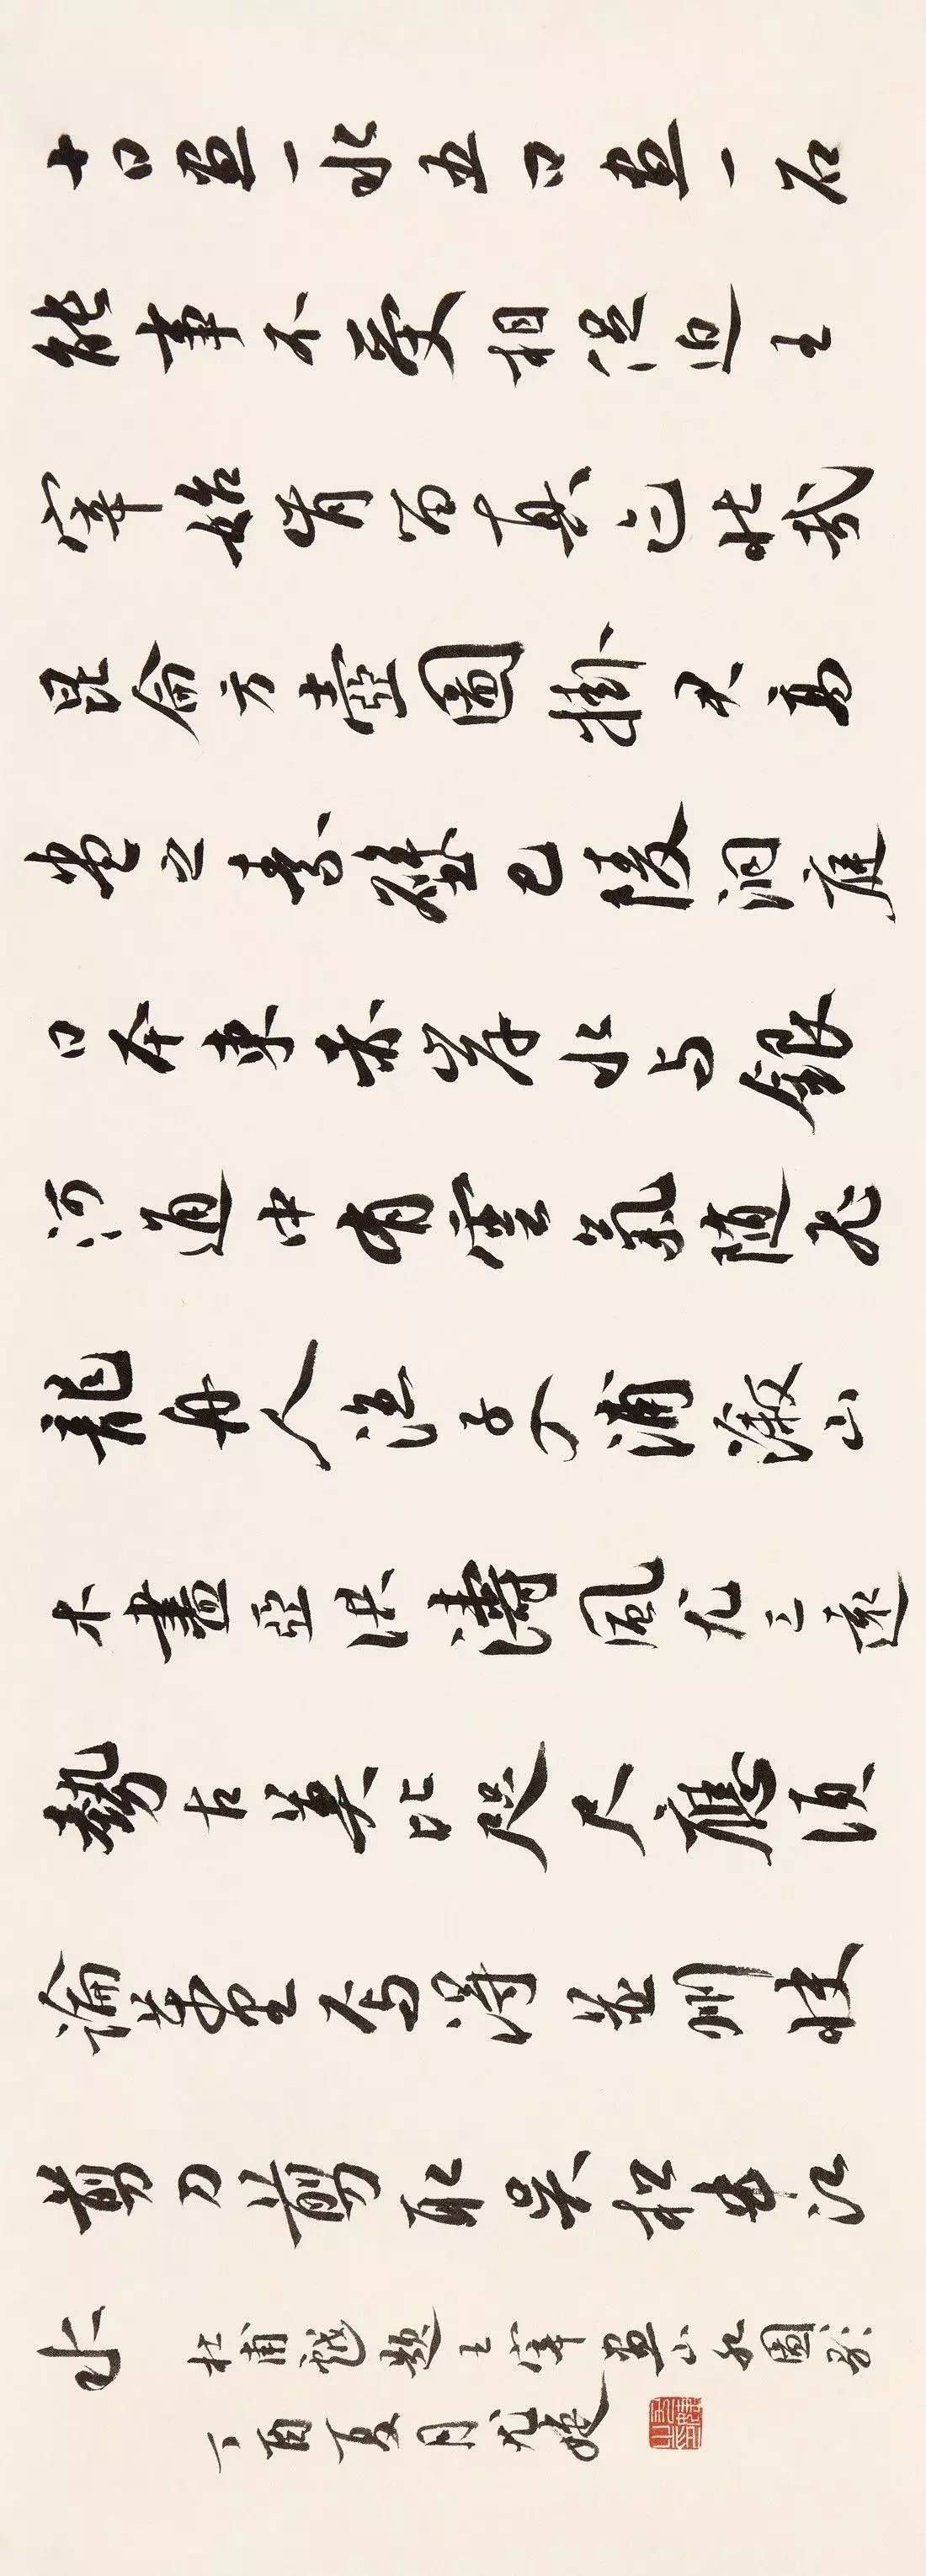 十日畫一水五日畫一石
能事不受相促迫王
宰始肯留真迹壯哉
昆侖方壺圖掛君高
堂之素壁巴陵洞庭
日本東赤岸水与銀
河通中有雲氣隨飛
龍舟人漁子入浦漵山
木盡亞洪濤風尤工遠
勢古莫比咫尺應須
論萬里焉得並州快
剪刀剪取吳松半江
水
杜甫戲題王宰畫山水圖歌
丁酉夏月尤